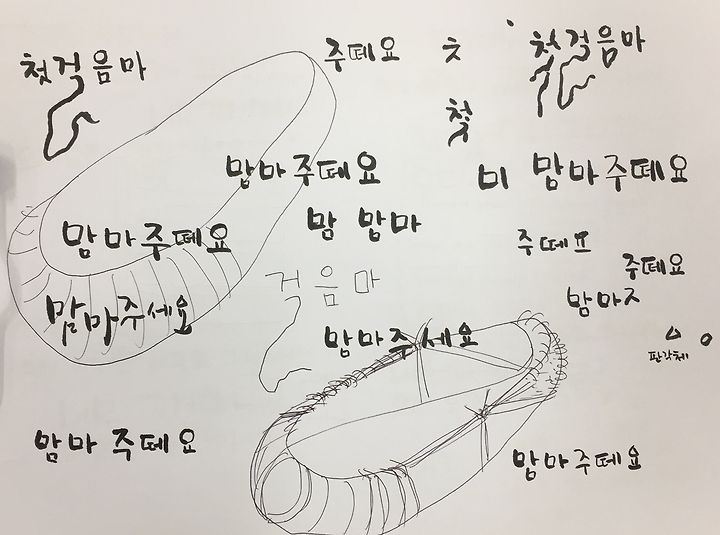 첫걸음마
주떼요
ㅊ
첫걸음마
첯
맘마주떼요
미 맘마주떼요
맘 맘마
맘마주떼요
주떼프
주떼요
걸음마
맘마ㅈ
맘마주세요
맘마주세요
판각체
맘마주떼요
맘마주떼요